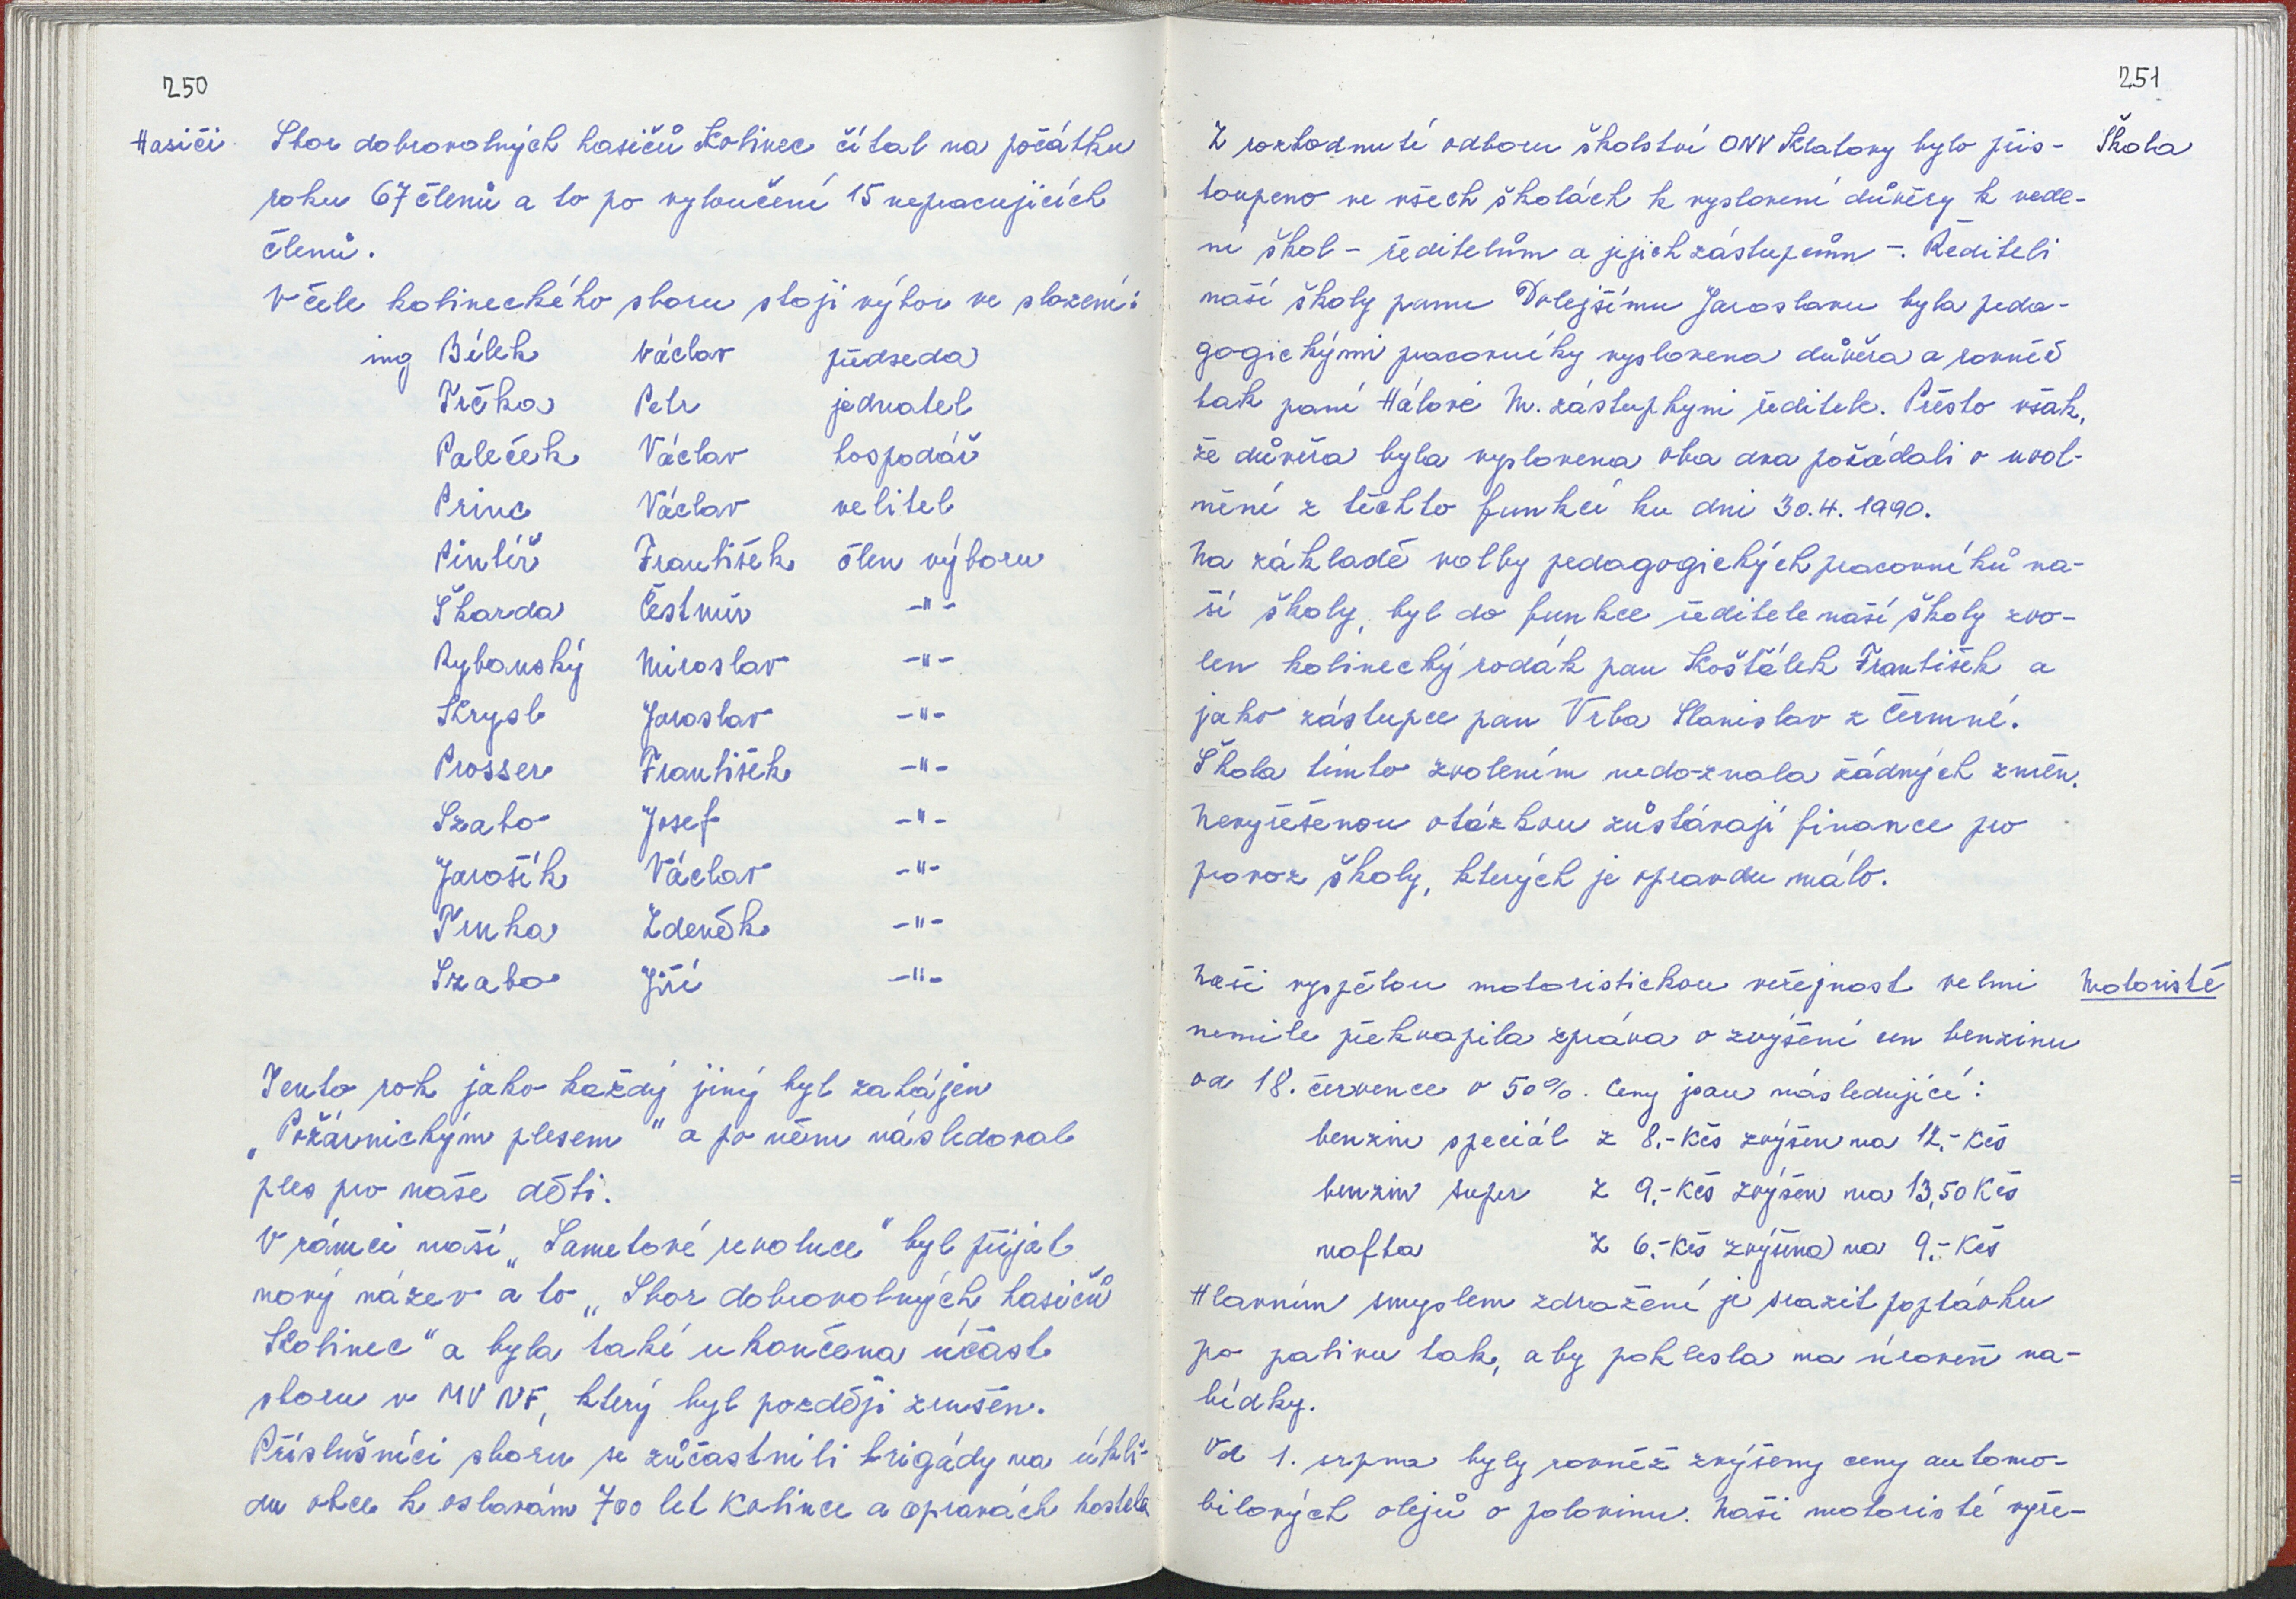 250
Hasiči Sbor dobrovolných hasičů Kolinec čítal na počátku
roku 67 členů a to po vyloučení 15 nepracujících
členů.
V čele kolineckého sboru stojí výbor ve složení:
ing Bílek Václav předseda
Trčka Petr jednatel
Paleček Václav hospodář
Princ Václav velitel
Pintíř František člen výboru
Škarda Čestmír -"-
Rybanský Miroslav -"-
Krysl Jaroslav -"-
Prosser František -"-
Szabo Josef -"-
Jarošík Václav -"-
Trnka Zdeněk -"-
Szabo Jiří -"-
Tento rok jako každý jiný byl zahájen
„Požárnickým plesem" a po něm následoval
ples pro naše děti.
V rámci naší „Sametové revoluce" byl přijat
nový název a to „Sbor dobrovolných hasičů
Kolinec" a byla také ukončena účast
sboru v MV NF, který byl později zrušen.
Příslušníci sboru se zůčastnili brigády na úkli-
du obce k oslavám 700 let Kolince a opravách kostela
251
Z rozhodnutí odboru školství ONV Klatovy bylo přis- Škola
toupeno ve všech školách k vyslovení důvěry k vede-
ní škol - ředitelům a jejich zástupcům -. Řediteli
naší školy panu Dolejšímu Jaroslavu byla peda-
gogickými pracovníky vyslovena důvěra a rovněž
tak paní Hálové M. zástupkyni ředitele. Přesto však,
že důvěra byla vyslovena oba dva požádali o uvol-
nění z těchto funkcí ku dni 30.4.1990.
Na základě volby pedagogických pracovníků na-
ší školy, byl do funkce ředitele naší školy zvo-
len kolinecký rodák pan Košťálek František a
jako zástupce pan Vrba Stanislav z Čermné.
Škola tímto zvolením nedoznala žádných změn.
Nevyřešenou otázkou zůstávají finance pro
provoz školy, kterých je opravdu málo.
Naši vyspělou motoristickou veřejnost velmi Motoristé
nemile překvapila zpráva o zvýšení cen benzinu
od 18. července o 50%. Ceny jsou následující:
benzin speciál z 8.- Kčs zvýšen na 12.- Kčs
benzin super z 9.- Kčs zvýšen na 13,50 Kčs
nafta z 6.- Kčs zvýšena na 9.- Kčs
Hlavním smyslem zdražení je srazit poptávku
po palivu tak, aby poklesla na úroveň na-
bídky.
Od 1. srpna byly rovněž zvýšeny ceny automo-
bilových olejů o polovinu. Naši motoristé vyře-